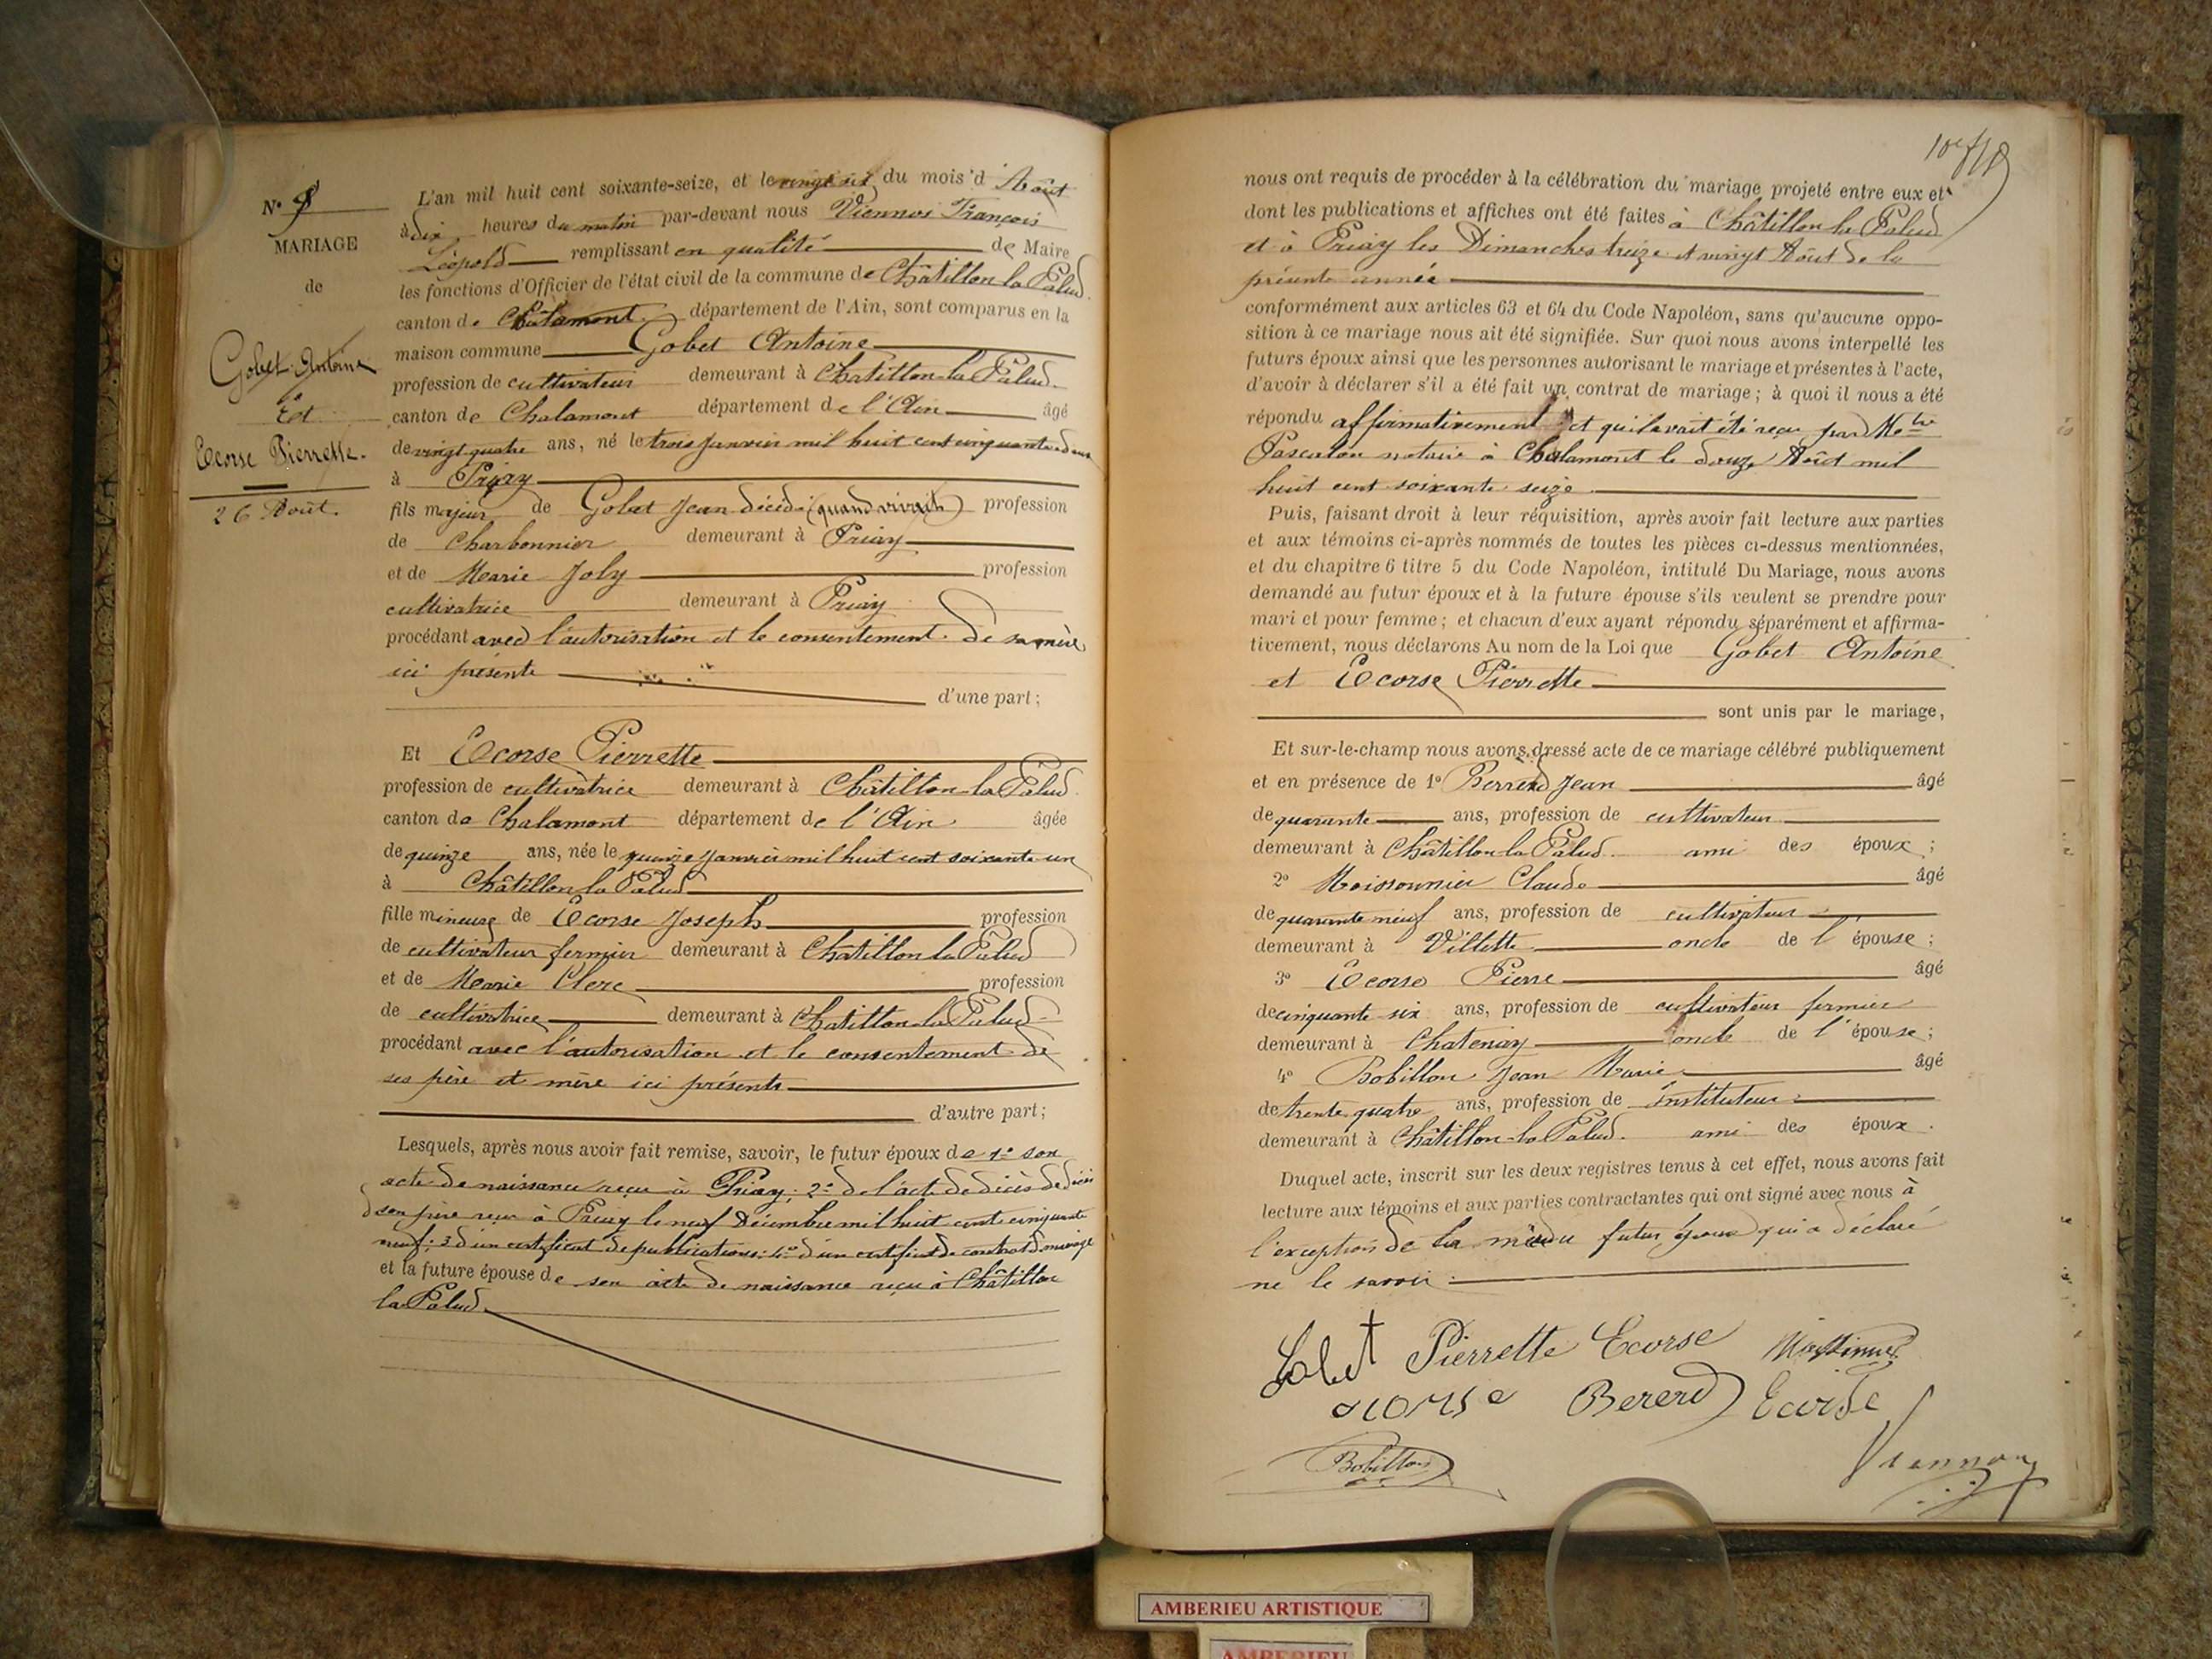 N° 9
MARIAGE
de
Gobet Antoine
Et
Ecorse Pierrette.
26 Août.
L'an mil huit cent soixante-seize, et le vingt six du mois d'Août
à dix heures du matin par-devant nous Viennois François
Léopold remplissant en qualité de Maire
les fonctions d'Officier de l'état civil de la commune de Châtillon la Palud
canton de Chalamont département de l'Ain, sont comparus en la
maison commune Gobet Antoine
profession de cultivateur demeurant à Chatillon-la-Palud
canton de Chalamont département de l'Ain âgé
de vingt quatre ans, né le trois Janvier mil huit cent cinquante deux
à Priay
fils majeur de Gobet Jean décédé (quand vivait) profession
de Charbonnier demeurant à Priay
et de Marie Joly profession
cultivatrice demeurant à Priay
procédant avec l'autorisation et le consentement de sa mère
ici présente
d'une part;
Et Ecorse Pierrette
profession de cultivatrice demeurant à Châtillon-la-Palud
canton de Chalamont département de l'Ain âgée
de quinze ans, née le quinze Janvier mil huit cent soixante un
à Châtillon la Palud
fille mineure de Ecorse Joseph profession
de cultivateur fermier demeurant à Châtillon la Palud
et de Marie Clerc profession
de cultivatrice demeurant à Chatillon-la-Palud
procédant avec l'autorisation et le consentement de
ses père et mère ici présents
d'autre part;
Lesquels, après nous avoir fait remise, savoir, le futur époux de 1° son
acte de naissance reçu à Priay; 2° de l'acte de décès de
son père reçu à Priay le neuf Décembre mil huit cent cinquante
neuf; 3° d'un certificat de publications; 4° d'un certificat de contrat de mariage
et la future épouse de son acte de naissance reçu à Châtillon
la Palud
nous ont requis de procéder à la célébration du mariage projeté entre eux et
dont les publications et affiches ont été faites à Châtillon la Palud
et à Priay les Dimanches treize et vingt Août de la
présente année
conformément aux articles 63 et 64 du Code Napoléon, sans qu'aucune oppo-
sition à ce mariage nous ait été signifiée. Sur quoi nous avons interpellé les
futurs époux ainsi que les personnes autorisant le mariage et présentes à l'acte,
d'avoir à déclarer s'il a été fait un contrat de mariage; à quoi il nous a été
répondu affirmativement et qu'il avait été reçu par Me
Pascalon notaire à Chalamont le douze Août mil
huit cent soixante seize
Puis, faisant droit à leur réquisition, après avoir fait lecture aux parties
et aux témoins ci-après nommés de toutes les pièces ci-dessus mentionnées,
et du chapitre 6 titre 5 du Code Napoléon, intitulé Du Mariage, nous avons
demandé au futur époux et à la future épouse s'ils veulent se prendre pour
mari et pour femme; et chacun d'eux ayant répondu séparément et affirma-
tivement, nous déclarons Au nom de la Loi que Gobet Antoine
et Ecorse Pierrette
sont unis par le mariage,
Et sur-le-champ nous avons dressé acte de ce mariage célébré publiquement
et en présence de 1° Jean âgé
de quarante ans, profession de cultivateur
demeurant à Châtillon la Palud. ami des époux;
2° Moissonnier Claude âgé
de quarante neuf ans, profession de cultivateur
demeurant à Villette oncle de l'épouse;
3° Ecorse Pierre âgé
de cinquante six ans, profession de cultivateur fermier
demeurant à Chatenay oncle de l'épouse;
4° Bobillon Jean Marie âgé
de trente quatre ans, profession de instituteur
demeurant à Châtillon-la-Palud. ami des époux.
Duquel acte, inscrit sur les deux registres tenus à cet effet, nous avons fait
lecture aux témoins et aux parties contractantes qui ont signé avec nous à
l'exception de la mère du futur époux qui a déclaré
ne le savoir
Gobet Pierrette Ecorse
Ecorse Bererd Ecorse
Bobillon
AMBERIEU ARTISTIQUE
AMBERIEU